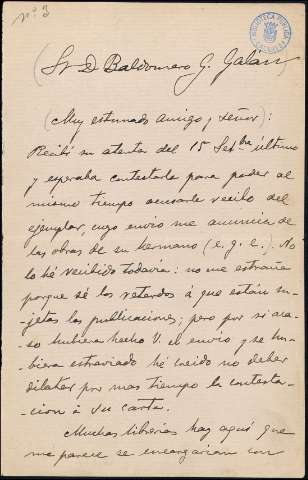 nº 3
BIBLIOTECA PUBLICA
(Sr D Baldomero G. Galán
(Muy estimado amigo y señor):
Recibí su atenta del 15 Setbre último
y esperaba contestarla para poder al
mismo tiempo acusarle recibo del
ejemplar, cuyo envío me anuncia de
las obras de su hermano (e. g. e.). No
lo hé recibido todavía: no me extraña
porque sé los retardos á que están su-
jetas las publicaciones; pero por si aca-
so hubiera hecho V. el envío y se hu-
biera estraviado hé creido no deber
dilatar por mas tiempo la contesta-
cion á su carta.
Muchas librerias hay aquí que
me parece se encargarian con